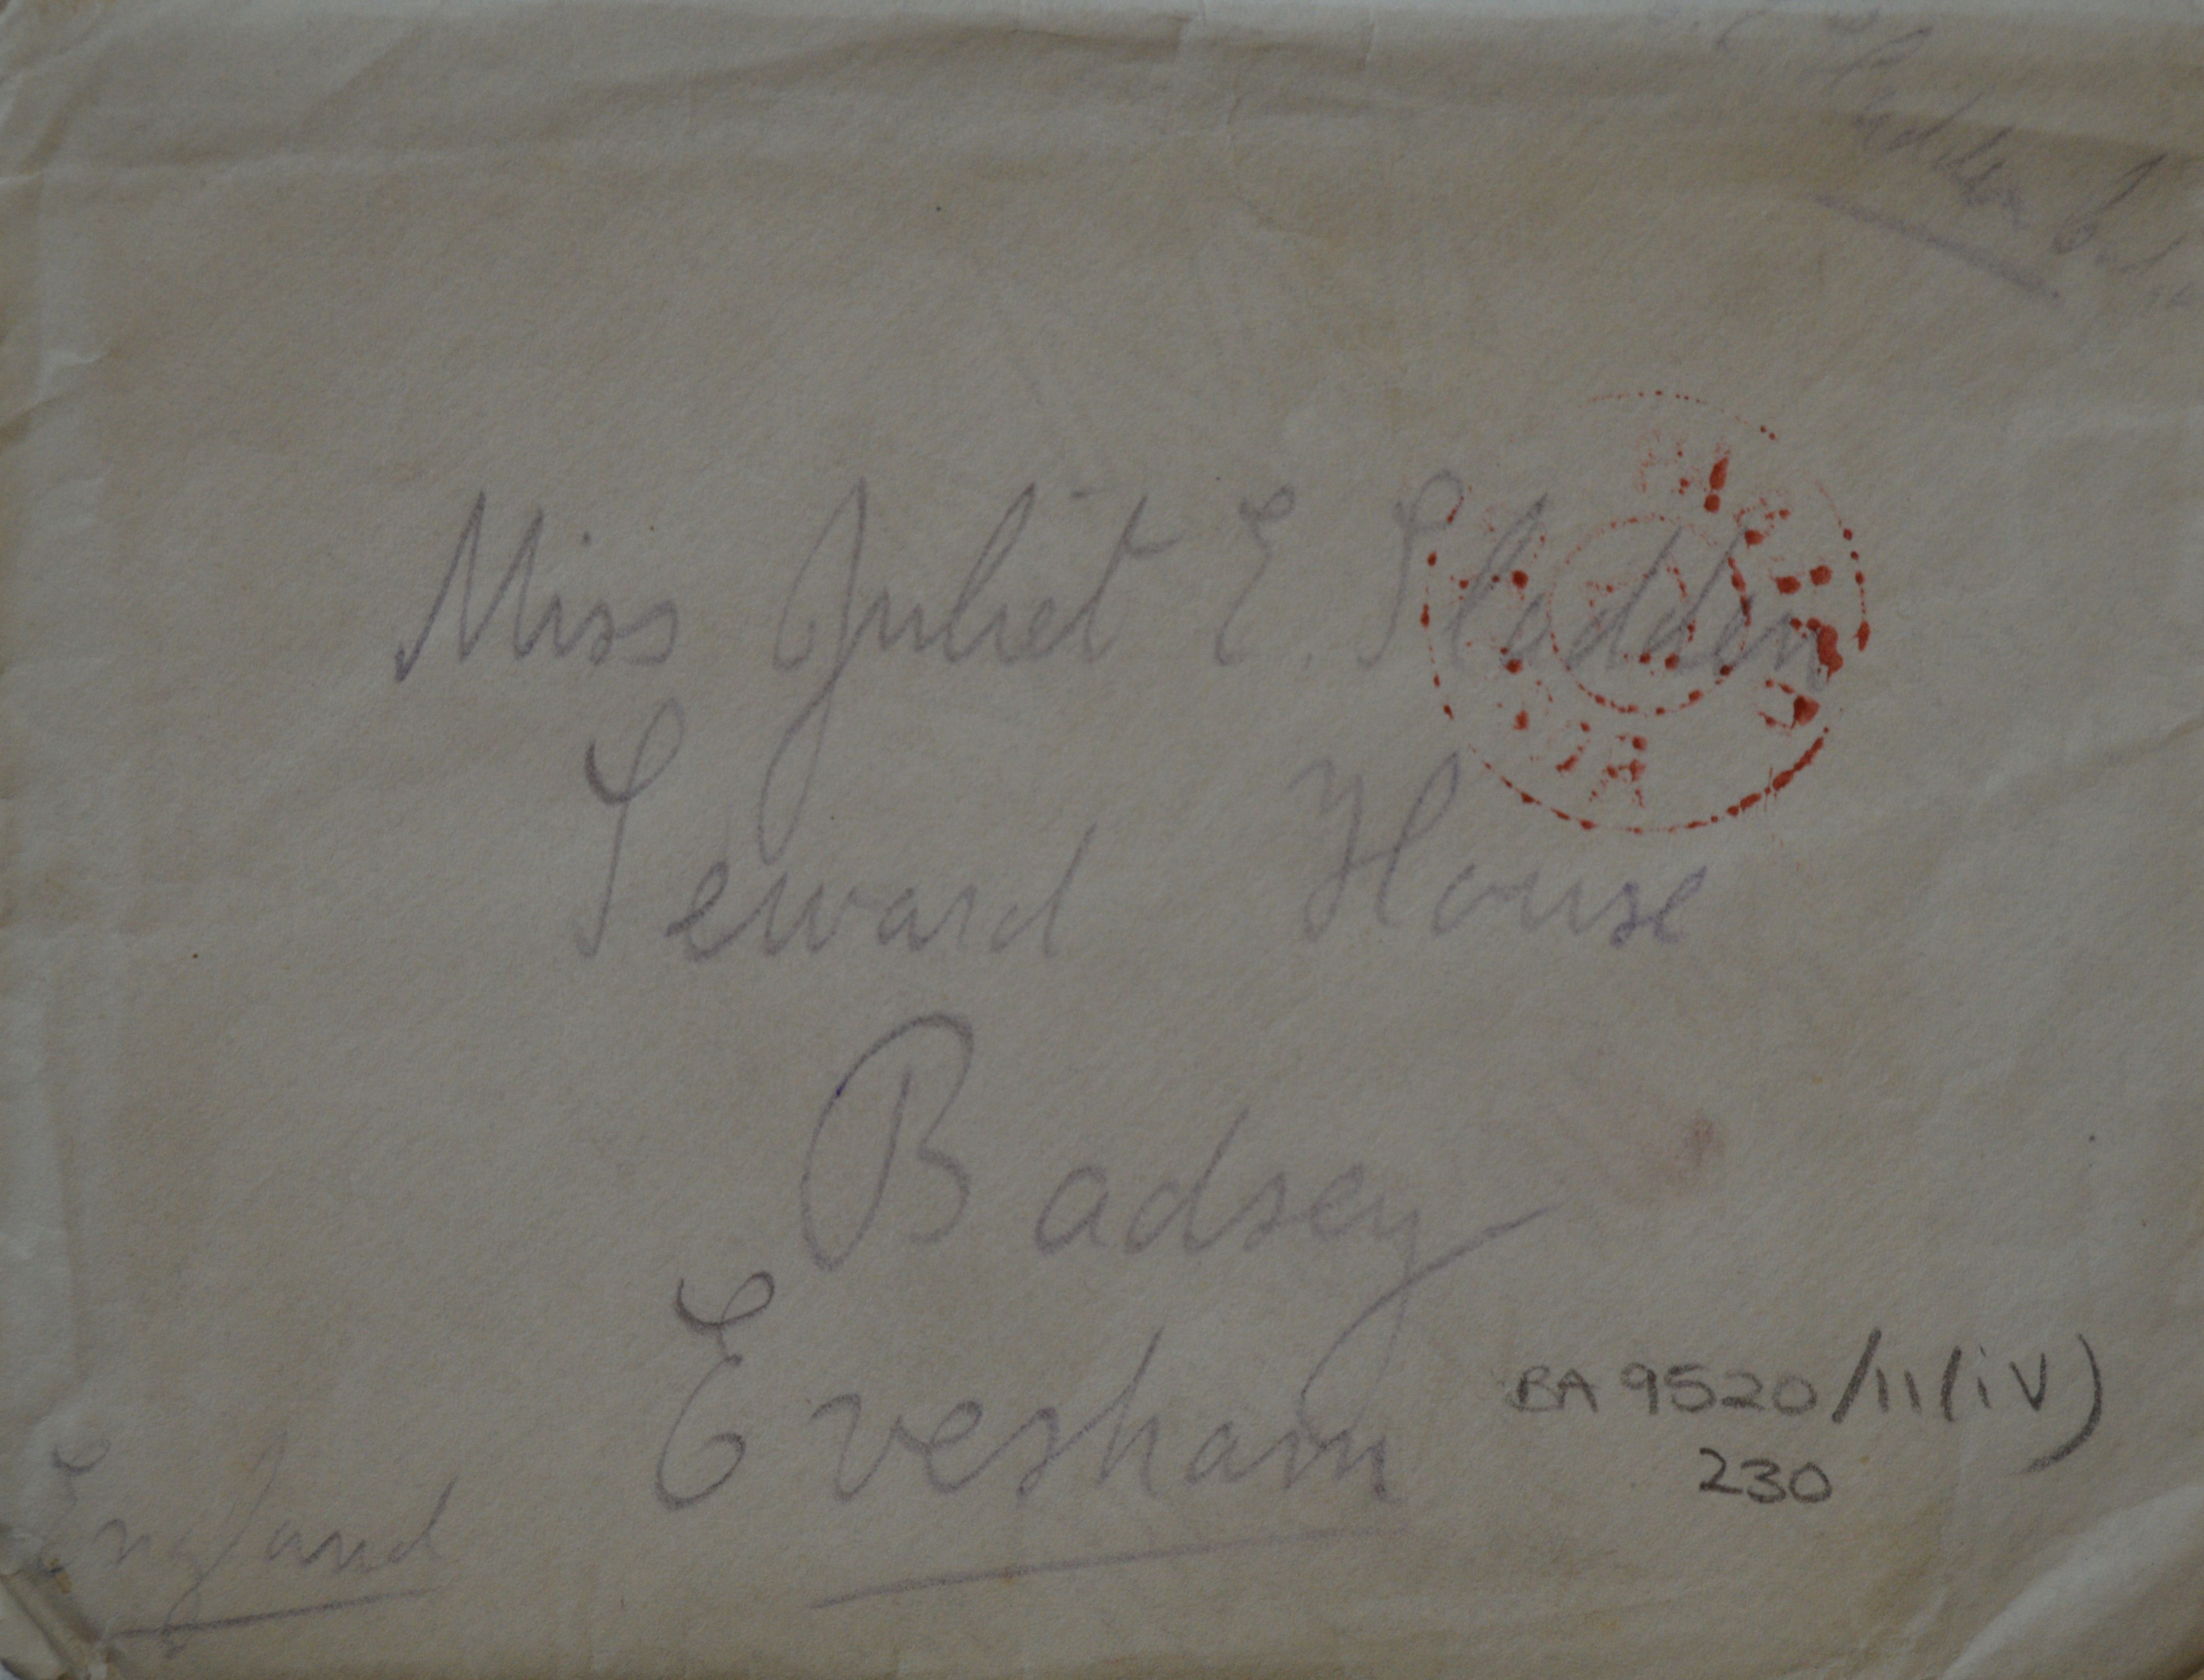 Miss Juliet E. Sladden
Seward House
Badsey
Evesham
England
BA 9520/11(iv)
230